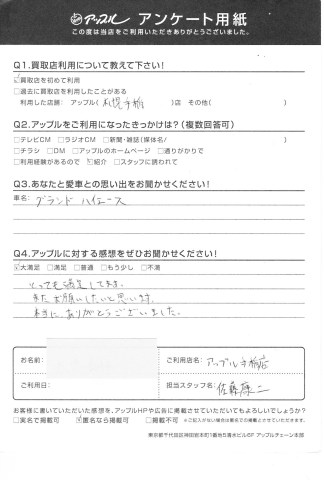 アップル アンケート用紙
この度は当店をご利用いただきありがとうございました。
Q1.買取店利用について教えて下さい!
☑買取店を初めて利用
□過去に買取店を利用したことがある
利用した店舗: アップル( 札幌手稲 )店 その他( )
Q2.アップルをご利用になったきっかけは?(複数回答可)
□テレビCM □ラジオCM □新聞・雑誌(媒体名/ )
□チラシ □DM □アップルのホームページ □通りがかりで
□利用経験があるので ☑紹介 □スタッフに誘われて
Q3.あなたと愛車との思い出をお聞かせください!
車名: グランド ハイエース
Q4.アップルに対する感想をぜひお聞かせください!
☑大満足 □満足 □普通 □もう少し □不満
とっても満足してます。
またお願いしたいと思います。
本当に、ありがとうございました。
お名前:
ご利用店名: アップル手稲店
ご利用日:
担当スタッフ名: 佐藤康二
お客様に書いていただいた感想を、アップルHPや広告に掲載させていただいてもよろしいでしょうか?
□実名で掲載可 ☑匿名なら掲載可 □掲載不可 ※ご記入がない場合は匿名での掲載とさせていただきます。
東京都千代田区神田岩本町1番地5清水ビル6F アップルチェーン本部